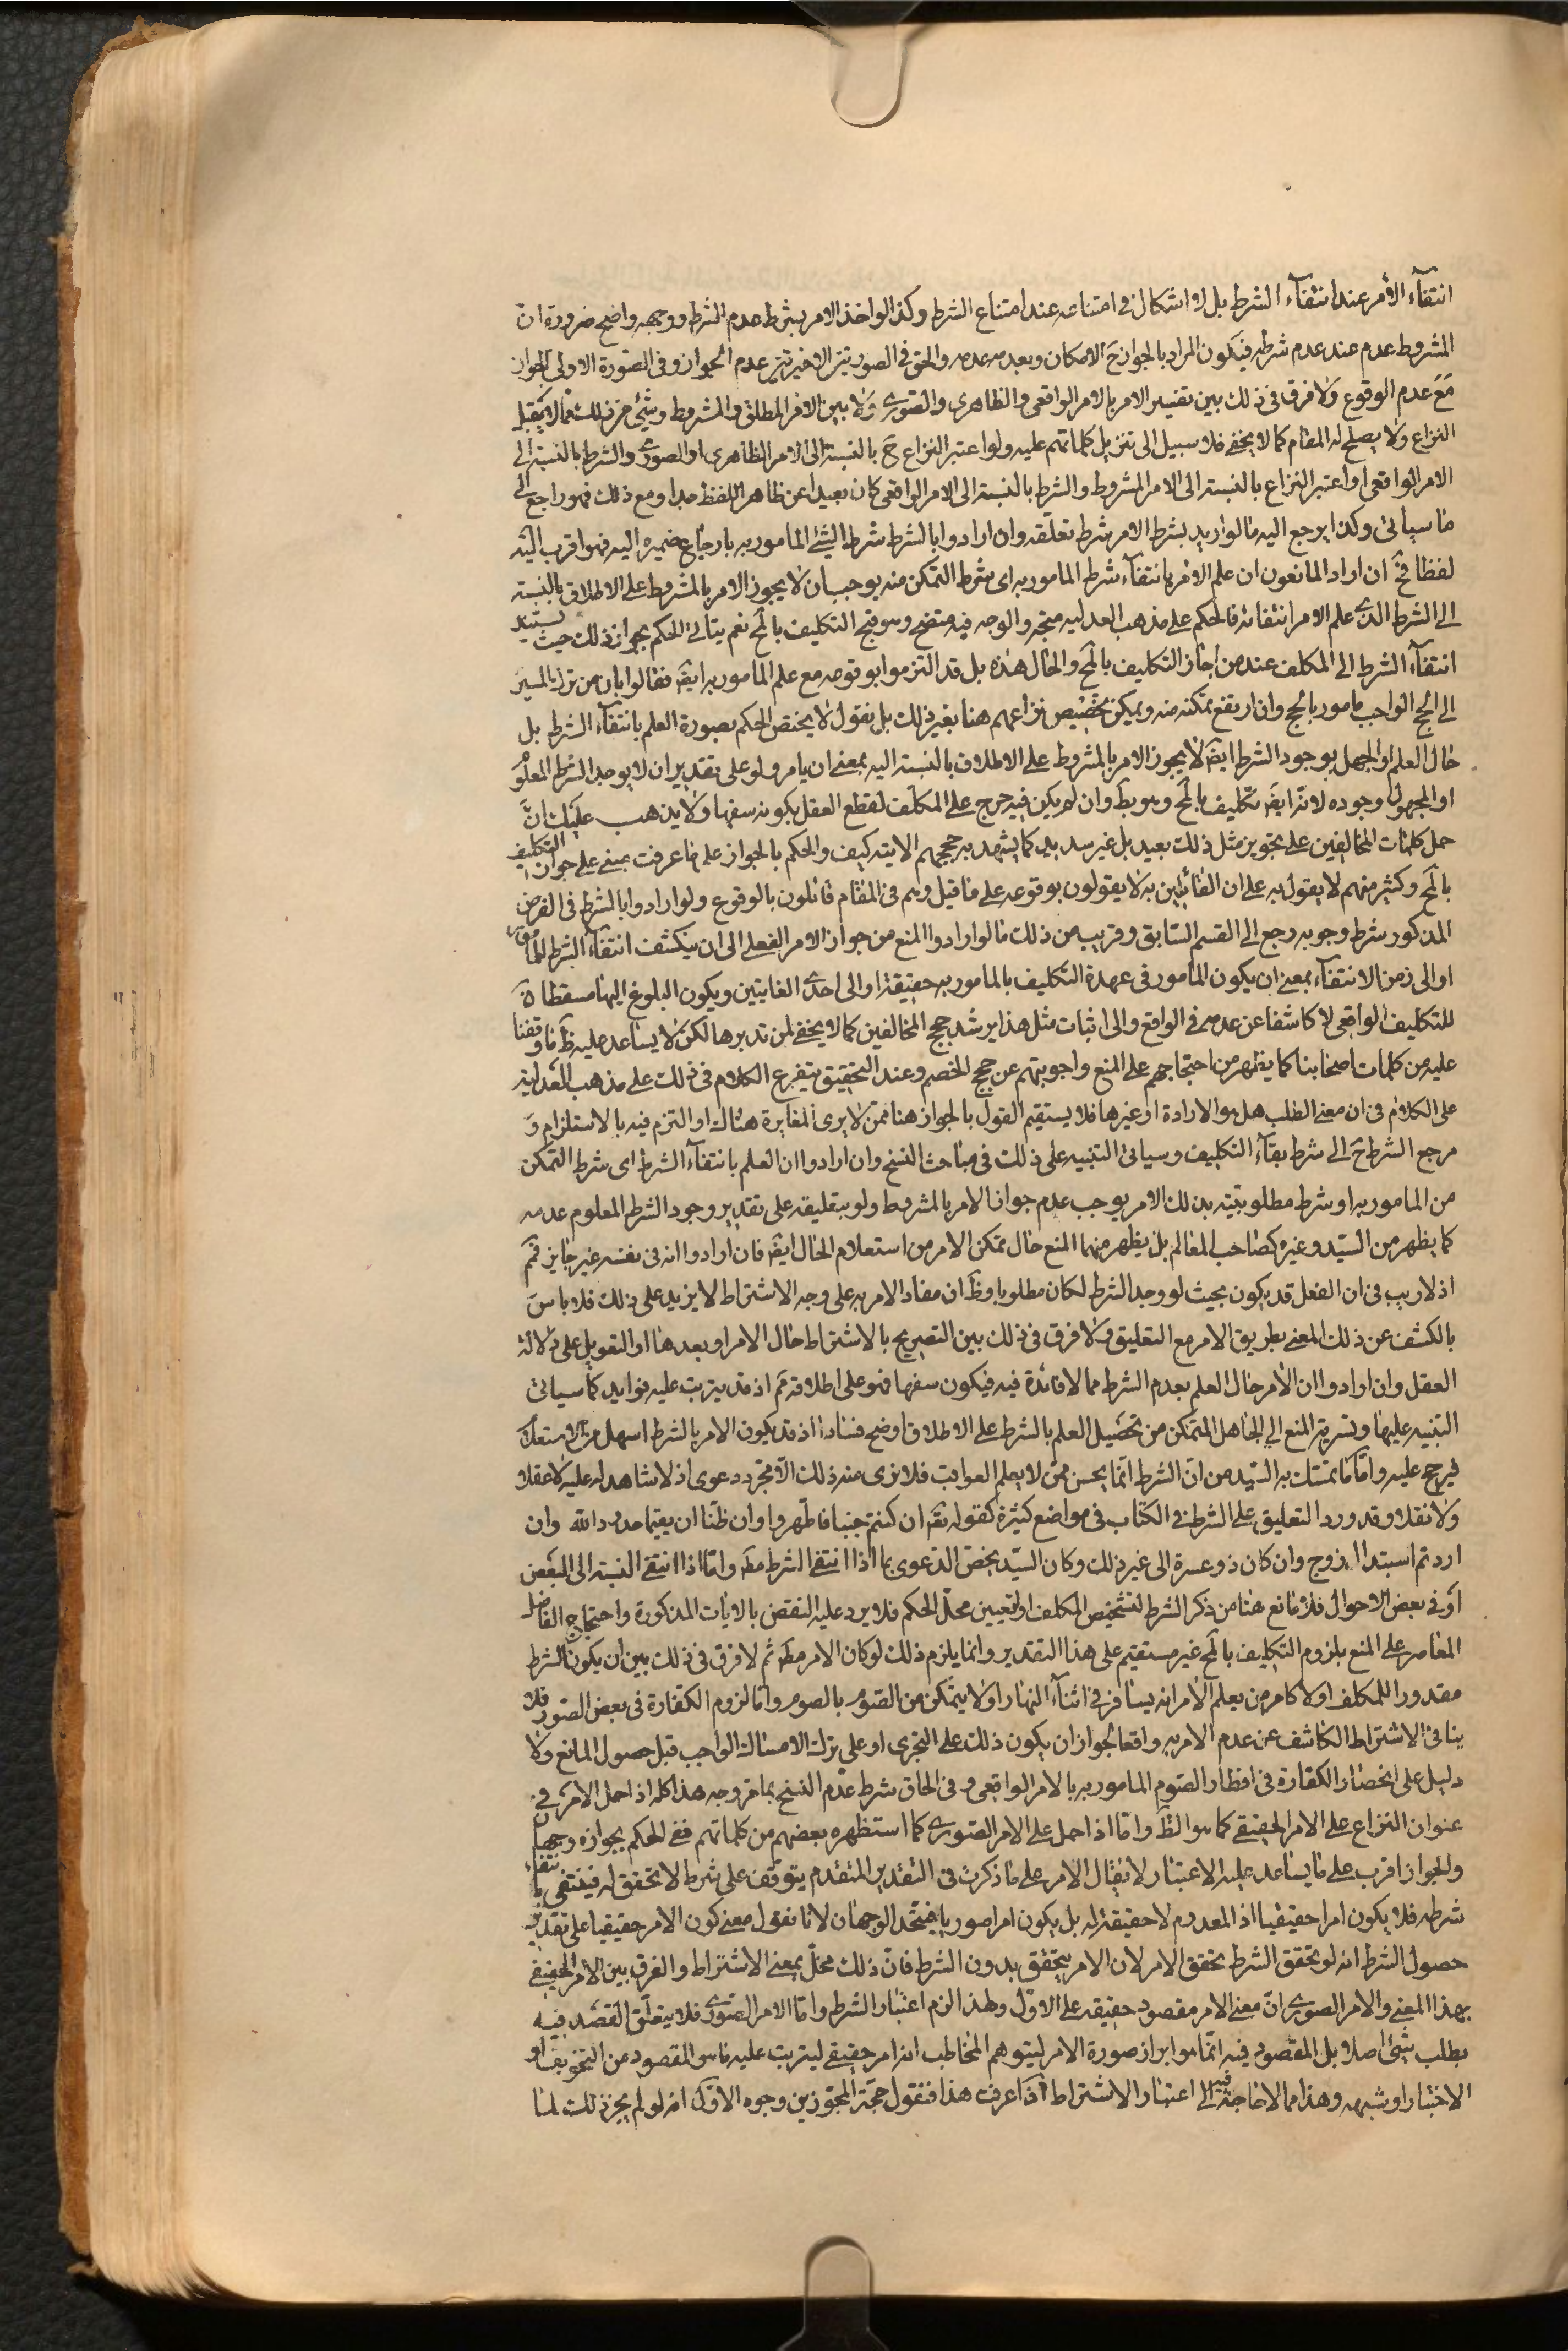 انتفآء الأمر عند انتفآء الشرط بل لا اشكال فى امتناعه عند امتناع الشرط وكذا لو اخذ الامر بشرط عدم الشرط ووجهه واضح ضرورة ان
المشروط عدم عند عدم شرطه فيكون المراد بالجواز ح الامكان وبعدمه عدمه والحق فى الصورتين الاخيرتين عدم الجواز وفى الصورة الاولى الجواز
مع عدم الوقوع ولا فرق فى ذلك بين تفسير الامر بالامر الواقعى والظاهرى والصورى ولا بين الامر المطلق والمشروط وشئ من ذلك مما لا يقبل
النزاع ولا يصلح له المقام كما لا يخفى فلا سبيل الى تنزيل كلماتهم عليه ولو اعتبر النزاع ح بالنسبة الى الامر الظاهرى او الصورى والشرط بالنسبة الى
الامر الواقعى او اعتبر النزاع بالنسبة الى الامر المشروط والشرط بالنسبة الى الامر الواقعى كان بعيدا عن ظاهر اللفظ جدا ومع ذلك فهو راجع الى
ما سياتى وكذا يرجع اليه ما لو اريد بشرط الامر شرط تعلّقه وان ارادوا بالشرط شرط الشئ المامور به بارجاع ضميره اليه فهو اقرب اليه
لفظا فح ان اراد المانعون ان علم الامر بانتفآء شرط المامور به اى شرط التمكن منه يوجب ان لا يجوز الامر بالمشروط على الاطلاق بالنسبة
الى الشرط الذى علم الامر انتفائه فالحكم على مذهب العدلية متجه والوجه فيه متضح وهو قبح التكليف بالمح نعم يتاتى الحكم بجواز ذلك حيث يستند
انتفآء الشرط الى المكلف عند من اجاز التكليف بالمح والحال هذه بل قد التزموا بوقوعه مع علم المامور به ايضَ فقالوا بان من ترك المسير
الى الحج الواجب مامور بالحج وان ارتفع تمكنه منه ويمكن تخصيص نزاعهم هنا بغير ذلك بل نقول لا يختص الحكم بصورة العلم بانتفآء الشرط بل
حال العلم او الجهل بوجود الشرط ايضَ لا يجوز الامر بالمشروط على الاطلاق بالنسبة اليه بمعنى ان يامر ولو على تقدير ان لا يوجد الشرط المعلوم
او المجهول وجوده لانه ايضَ تكليف بالمح وهو بطَ وان لم يكن فيه حرج على المكلف لقطع العقل بكونه سفها ولا يذهب عليك انّ
حمل كلمات المخالفين على تجويز مثل ذلك بعيد بل غير سديد كما يشهد به حججهم الاتية كيف والحكم بالجواز على ما عرفت مبنى على جواز التكليف
بالمح وكثير منهم لا يقول به على ان القائلين به لا يقولون بوقوعه على ما قيل وهم فى المقام قائلون بالوقوع ولو ارادوا بالشرط فى الفرض
المذكور شرط وجوبه رجع الى القسم السابق وقريب من ذلك ما لو ارادوا المنع من جواز الامر الفعلى الى ان ينكشف انتفآء الشرط للمامور
او الى زمن الانتفآء بمعنى ان يكون المامور فى عهدة التكليف بالمامور به حقيقة او الى احدى الغايتين ويكون البلوغ اليها مسقطا
للتكليف الواقعى لا كاشفا عن عدمه فى الواقع والى اثبات مثل هذا يرشد حجج المخالفين كما لا يخفى لمن تدبرها لكن لا يساعد عليه ظَ ما وقفنا
عليه من كلمات اصحابنا كما يظهر من احتجاجهم على المنع واجوبتهم عن حجج الخصم وعند التحقيق يتفرع الكلام فى ذلك على مذهب العدلية
على الكلام فى ان معنى الطلب هل هو الارادة او غيرها فلا يستقيم القول بالجواز هنا ممن لا يرى المغايرة هناك او التزم فيه بالاستلزام و
مرجع الشرط ح الى شرط بقآء التكليف وسياتى التنبيه على ذلك فى مباحث النسخ وان ارادوا ان العلم بانتفآء الشرط اى شرط التمكن
من المامور به او شرط مطلوبيّته بذلك الامر يوجب عدم جواز الامر بالمشروط ولو بتعليقه على تقدير وجود الشرط المعلوم عدمه
كما يظهر من السيّد وغيره كصاحب المعالم بل يظهر منهما المنع حال تمكن الامر من استعلام الحال ايضَ فان ارادوا انه فى نفسه غير جايز فمَ
اذ لا ريب فى ان الفعل قد يكون بحيث لو وجد الشرط لكان مطلوبا وظَ ان مفاد الامر به على وجه الاشتراط لا يزيد على ذلك فلا باس
بالكشف عن ذلك المعنى بطريق الامر مع التعليق ولا فرق فى ذلك بين التصريح بالاشتراط حال الامر او بعدها او التعويل على دلالة
العقل وان ارادوا ان الأمر حال العلم بعدم الشرط مما لا فائدة فيه فيكون سفها فهو على اطلاقه مَ اذ قد يترتب عليه فوايد كما سياتى
التنبيه عليها وتسرية المنع الى الجاهل المتمكن من تحصيل العلم بالشرط على الاطلاق اوضح فسادا اذ قد يكون الامر بالشرط اسهل من الاستعلام
فيرجح عليه وامّا ما تمسّك به السيّد من انّ الشرط انّما يحسن ممّن لا يعلم العواقب فلا نرى منه ذلك الا مجرّد دعوى اذ لا شاهد له عليه لا عقلا
ولا نقلا وقد ورد التعليق على الشرط فى الكتاب فى مواضع كثيرة كقوله تعَ ان كنتم جنبا فاطهروا وان ظنّا ان يقيما حدود الله وان
اردتم استبدال زوج وان كان ذو عسرة الى غير ذلك وكان السيّد يخصّ الدعوى بما اذا انتفى الشرط مطَ وامّا اذا انتفى النسبة الى البعض
او فى بعض الاحوال فلا مانع هنا من ذكر الشرط لتشخيص المكلف او لتعيين محلّ الحكم فلا يرد عليه النقض بالايات المذكورة واحتجاج الفاضل
المعاصر على المنع بلزوم التكليف بالمح غير مستقيم على هذا التقدير وانما يلزم ذلك لو كان الامر مطَ ثم لا فرق فى ذلك بين ان يكون الشرط
مقدورا للمكلف او لا كامر من يعلم الامر انه يسافر فى اثنآء النهار او لا يتمكن من الصوم بالصوم وامّا لزوم الكفّارة فى بعض الصور فلا
ينافى الاشتراط الكاشف عن عدم الامر به واقعا لجواز ان يكون ذلك على التجرى او على ترك الامساك الواجب قبل حصول المانع ولا
دليل على انحصار الكفارة فى افطار الصوم المامور به بالامر الواقعى وفى الحاق شرط عدم النسخ بما مرّ وجه هذا كله اذا حمل الامر فى
عنوان النزاع على الامر الحقيقى كما هو الظَ وامّا اذا حمل على الامر الصورى كما استظهره بعضهم من كلماتهم ففى الحكم بجوازه وجهان
والجواز اقرب على ما يساعد عليه الاعتبار لا يقال الامر على ما ذكرت فى التقدير المتقدم يتوقف على شرط لا تحقق له فينتفى بانتفاء
شرطه فلا يكون امرا حقيقيا اذ المعدوم لا حقيقة له بل يكون امرا صوريا فيتّحد الوجهان لانا نقول معنى كون الامر حقيقيا على تقدير
حصول الشرط انه لو تحقق الشرط تحقق الامر لا ان الامر يتحقق بدون الشرط فانّ ذلك مخلّ بمعنى الاشتراط والفرق بين الامر الحقيقى
بهذا المعنى والامر الصورى انّ معنى الامر مقصود حقيقة على الاوّل ولهذا لزم اعتبار الشرط وامّا الامر الصورى فلا يتعلّق القصد فيه
بطلب شئ اصلا بل المقصود فيه انّما هو ابراز صورة الامر ليتوهم المخاطب انه امر حقيقى ليترتب عليه ما هو المقصود من التخويف او
الاختبار او شبهه وهذا مما لا حاجة فيه الى اعتبار الاشتراط اذا عرفت هذا فنقول حجّة المجوّزين وجوه الاوّل انه لو لم يجز ذلك لما